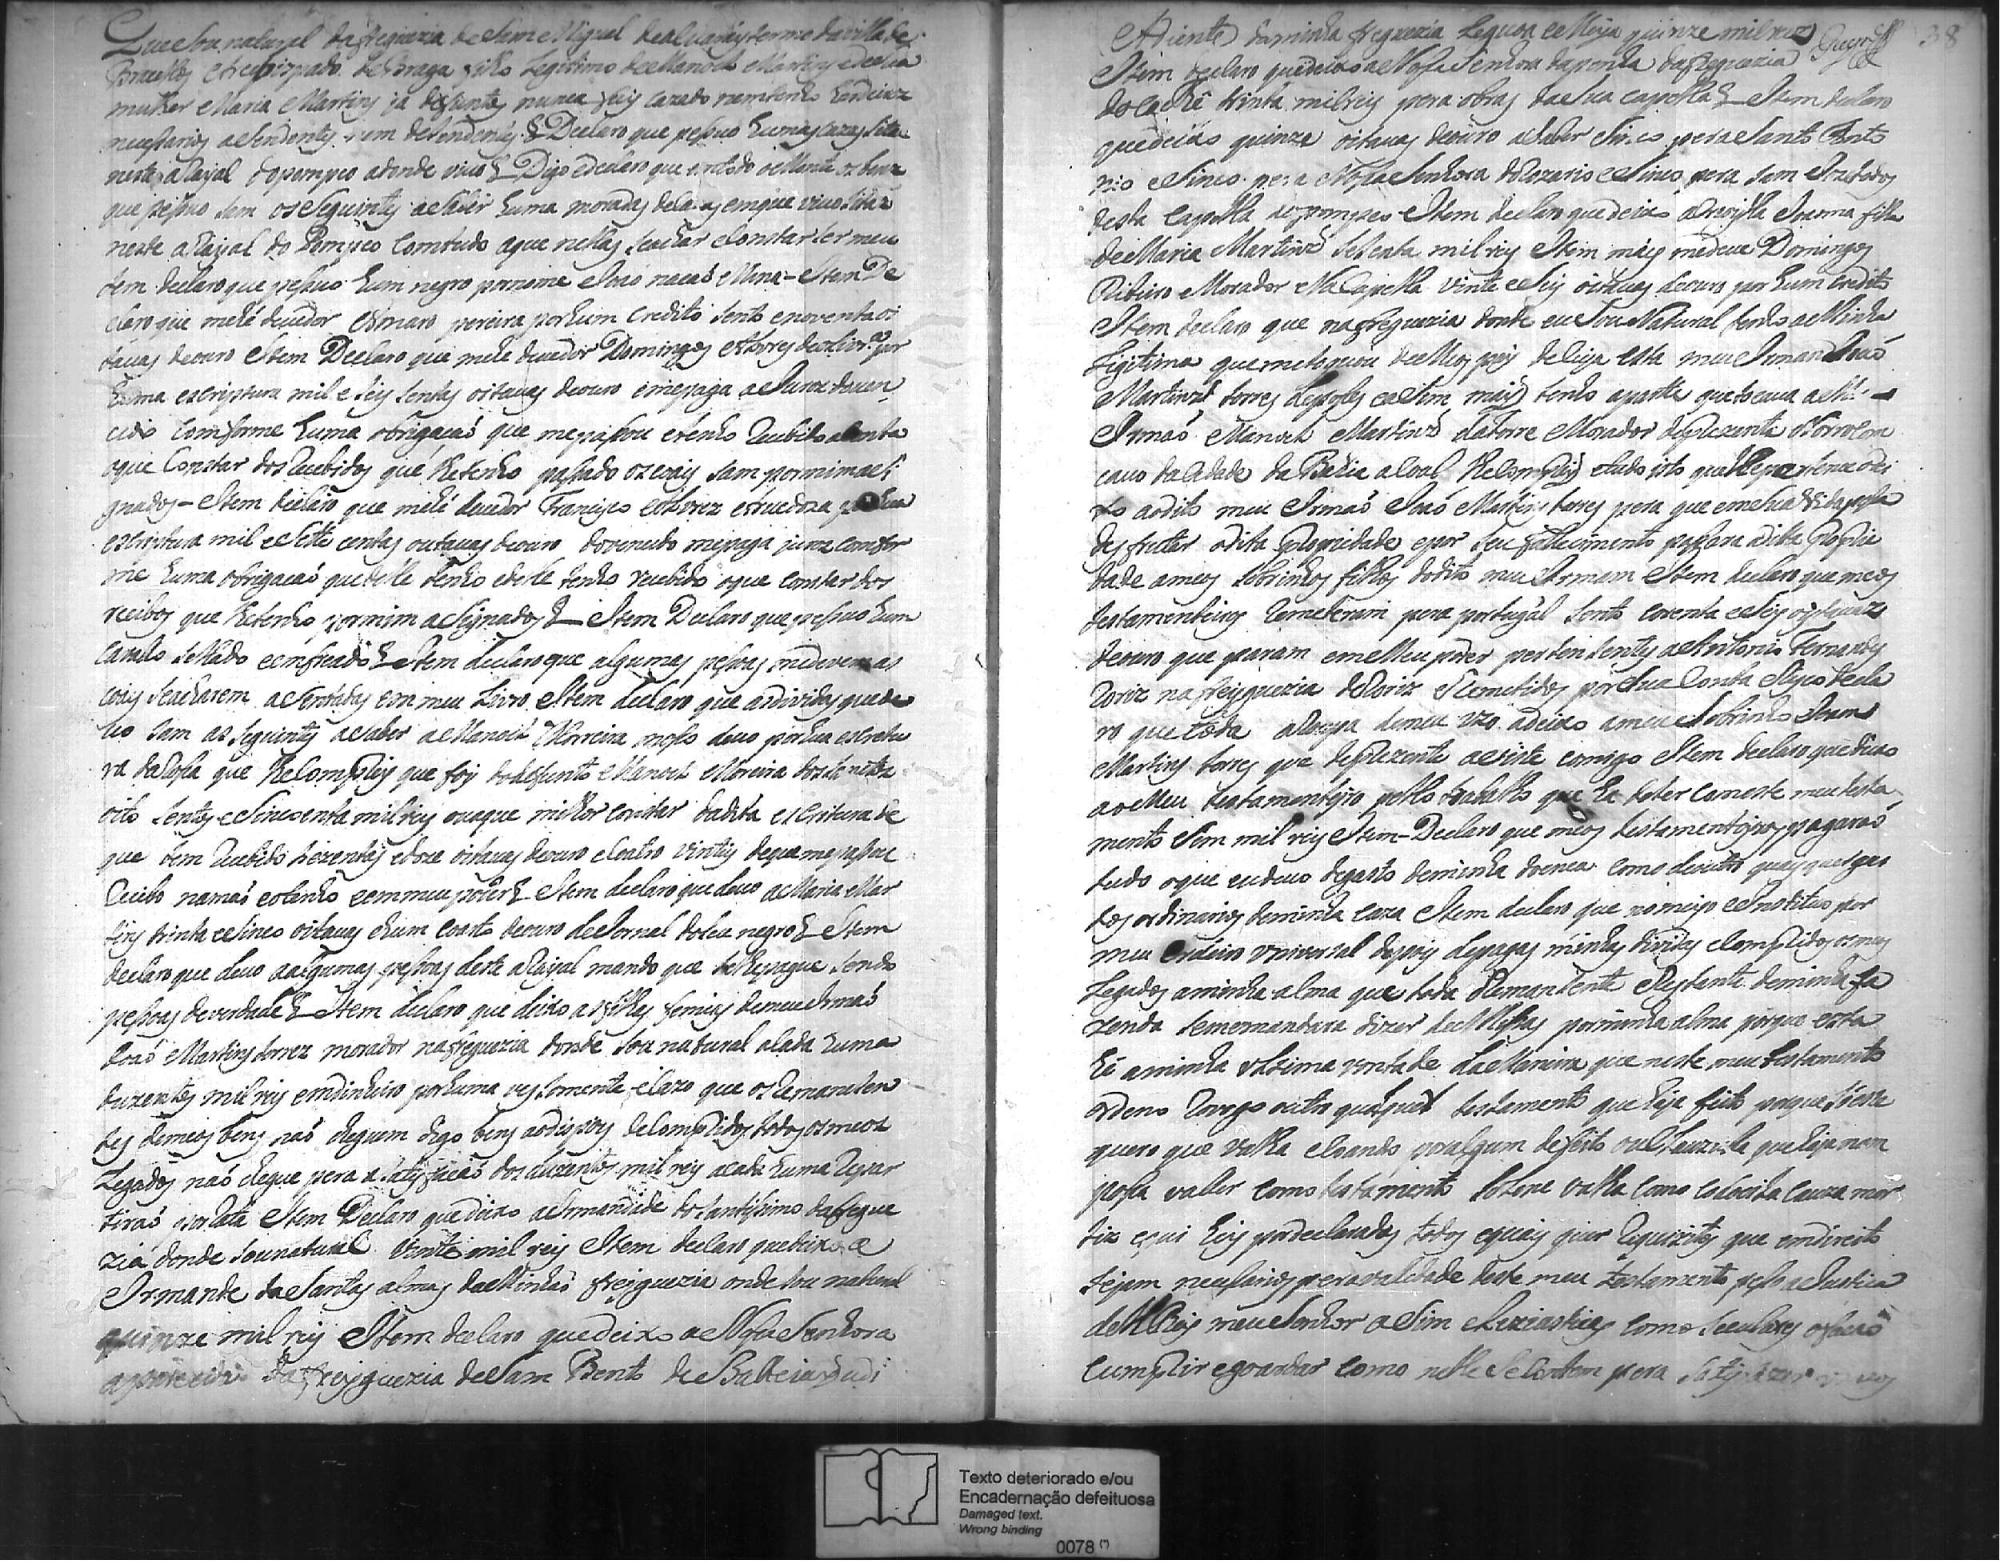 Que sou natural da freguezia de Sam Miguel de alvaraiz termo da villa de
Barcellos Arcebispado de Braga filho Legitimo de Manoel Martins e de sua
mulher Maria Martins ja defuntos nunca fuy cazado nem tenho herdeiros
necessarios asendentes nem desendentes & Declaro que pessuo humas cazas sitas
neste aRayal do pompeo adonde vivo & Digo e declaro que em tudo os bens
que pessuo sam os seguintes a saber huma morada de cazas em que vivo sitas
neste aRayal do Pompeo com tudo aque nellas se achar e constar ser meu
Item declaro que pessuo hum negro por nome João nacaõ Mina - Item De
claro que me hé devedor Amaro pereira por hum credito sento e noventa oi
tavas de ouro Item Declaro que me hé devedor Domingos Alvres de olivr.ª por
huma escriptura mil e seis sentas oitavas de ouro e me paga a Juros do ven
cido Comforme huma obrigacaõ que me passou e tenho Recebido a conta
o que Constar dos Recebidos que lhe tenho passado os coais sam por mim asi
gnados - Item declaro que me hé devedor Francisco Alvrez por hua
escritura mil e sete centas outavas de ouro do vencido me paga juros comfor
me huma obrigacaõ que delle tenho e delle tenho recebido o que constar dos
recibos que lhe tenho por mim asignados & Item Declaro que pessuo hum
Cavallo sellado e emfreado & Item declaro que algumas pessoas me devem as
coais se acharem asentadas em meu Livro Item declaro que as dividas que de
vo sam as seguintes a saber a Manoel Morreira mosso devo por hua escretu
ra da Rossa que lhe comprey que foy do defunto Manoel Moreira
oito sentos e sincoenta mil reis ou aque milhor constar da dita escritura de
que tem Recebido duzentas e doze oitavas de ouro e coatro vintes de que me passou
Recibo na maõ e o tenho em meu poder & Item declaro que devo a Maria Mar
tins trinta e sinco oitavas e hum coarto de ouro de Jornal do seu negro & Item
declaro que devo a algumas pessoas deste aRayal mando que se lhe pague sendo
pessoas de verdade & Item declaro que deixo as filhas femias de meu Irmaõ
Joaõ Martins torrez morador na freguezia donde sou natural a cada huma
duzentos mil reis em dinheiro por huma ves somente e cazo que os Remanesen
tes de meos bens naõ cheguem digo bens ao dispois de compridos todos os meos
Legados naõ chegue pera a satisfacaõ dos duzentos mil reis a cada huma Repar
tiraõ por Rata Item Declaro que deixo a Irmandade do santissimo da fregue
zia donde sou natural vinte mil reis Item declaro que deixo a
Irmande das Santas almas da Minha freiguezia onde sou natural
quinze mil reis Item declaro que deixo a Nossa Senhora
aparecida da freiguezia de Sam Bento de
(Hiente) da minha freguezia Legoa e Meya quinze mil reis 38
Item declaro que deixo a Nossa Senhora da penha da freguezia
do Caethé trinta mil reis pera obras da Sua Capella & Item declaro
que deixo quinze oitavas de ouro a saber Sinco pera Santo Anto
nio e Sinco pera Nossa Senhora do Rozario e Sinco pera Sam
desta Capella do pompeo Item declaro que deixo a Joanna filha
de Maria Martinz secenta mil reis Item mais me deve Domingos
Ribeiro Morador Na Capella vinte e seis oitavas de ouro por hum credito
Item declaro que na freguezia donde eu sou Natural tenho a Minha
Legitima que me toquou de Meos pais de cuja esta meu Irman Joaõ
Martinz torres de posse e asim mais tenho aparte que tocava a Meu
Irmaõ Manoel Martinz da torre Morador de prezente
da cidade da Bahia a coal lhe comprey e tudo isto que lhe pertence dei
xo ao dito meu Irmaõ Joaõ Martins torres pera que em sua vida possa
desfrutar o dita propriedade e por seu falecimento passara a dita Proprie
dade a meos sobrinhos filhos do dito meu Irmam Item declaro que meos
testamenteiros Remeteram pera portugal sento corenta e seis oitavas
de ouro que param em Meu poder pertensentes a Antonio Fernandes
Roriz na freigguezia de Roriz Remetidos por sua Conta e Risco decla
ro que toda a Roupa de meu uzo a deixo a meu Sobrinho Joam
Martins torres que de prezente asiste comigo Item declaro que deixo
ao Meu testamenteiro pello trabalho que ha de ter com este meu testa
mento Sem mil reis Item - Declaro que meos testamenteiros pagaraõ
tudo o que eu devo de gasto de minha doenca como de outros quaisquer gas
tos ordinarios de minha caza Item declaro que nomeyo e Instetuo por
meu erdeiro universal depois de pagas minhas dividas e compridos os meus
Legados a minha alma que toda Remanesente e Restante de minha Fa
zenda se me mandara dizer de Missas por minha alma porque esta
hé a minha ultima vontade da Maneira que neste meu testamento
ordeno Revogo outro qualquer testamento que haja feito porque só este
quero que valha e coando por algum defeito ou clauzula que haja nam
possa valler como testamento Solene valha como codocilo cauza mor
tis e aqui hey por declarados todos e quais quer Requizitos que em direito
sejam necesarios pera validade deste meu testamento peço a Justica
del Rey meu Senhor asim eclesiasticas como seculares o facaõ
cumprir e goardar como nelle se contem pera satisfazer
Texto deteriorado e/ou
Encadernação defeituosa
Damaged text.
Wrong binding
0078 (*)